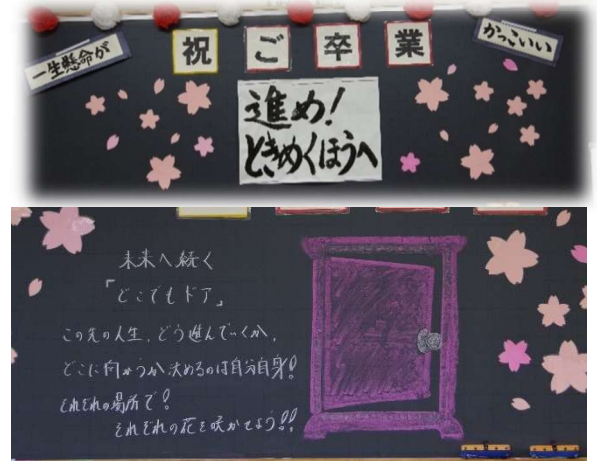 一生懸命が
祝ご卒業
かっこいい
進め!
ときめくほうへ
未来へ続く
「どこでもドア」
この先の人生、どう進んでいくか、
どこに向かうか決めるのは自分自身!
それぞれの場所で!
それぞれの花を咲かせよう!!